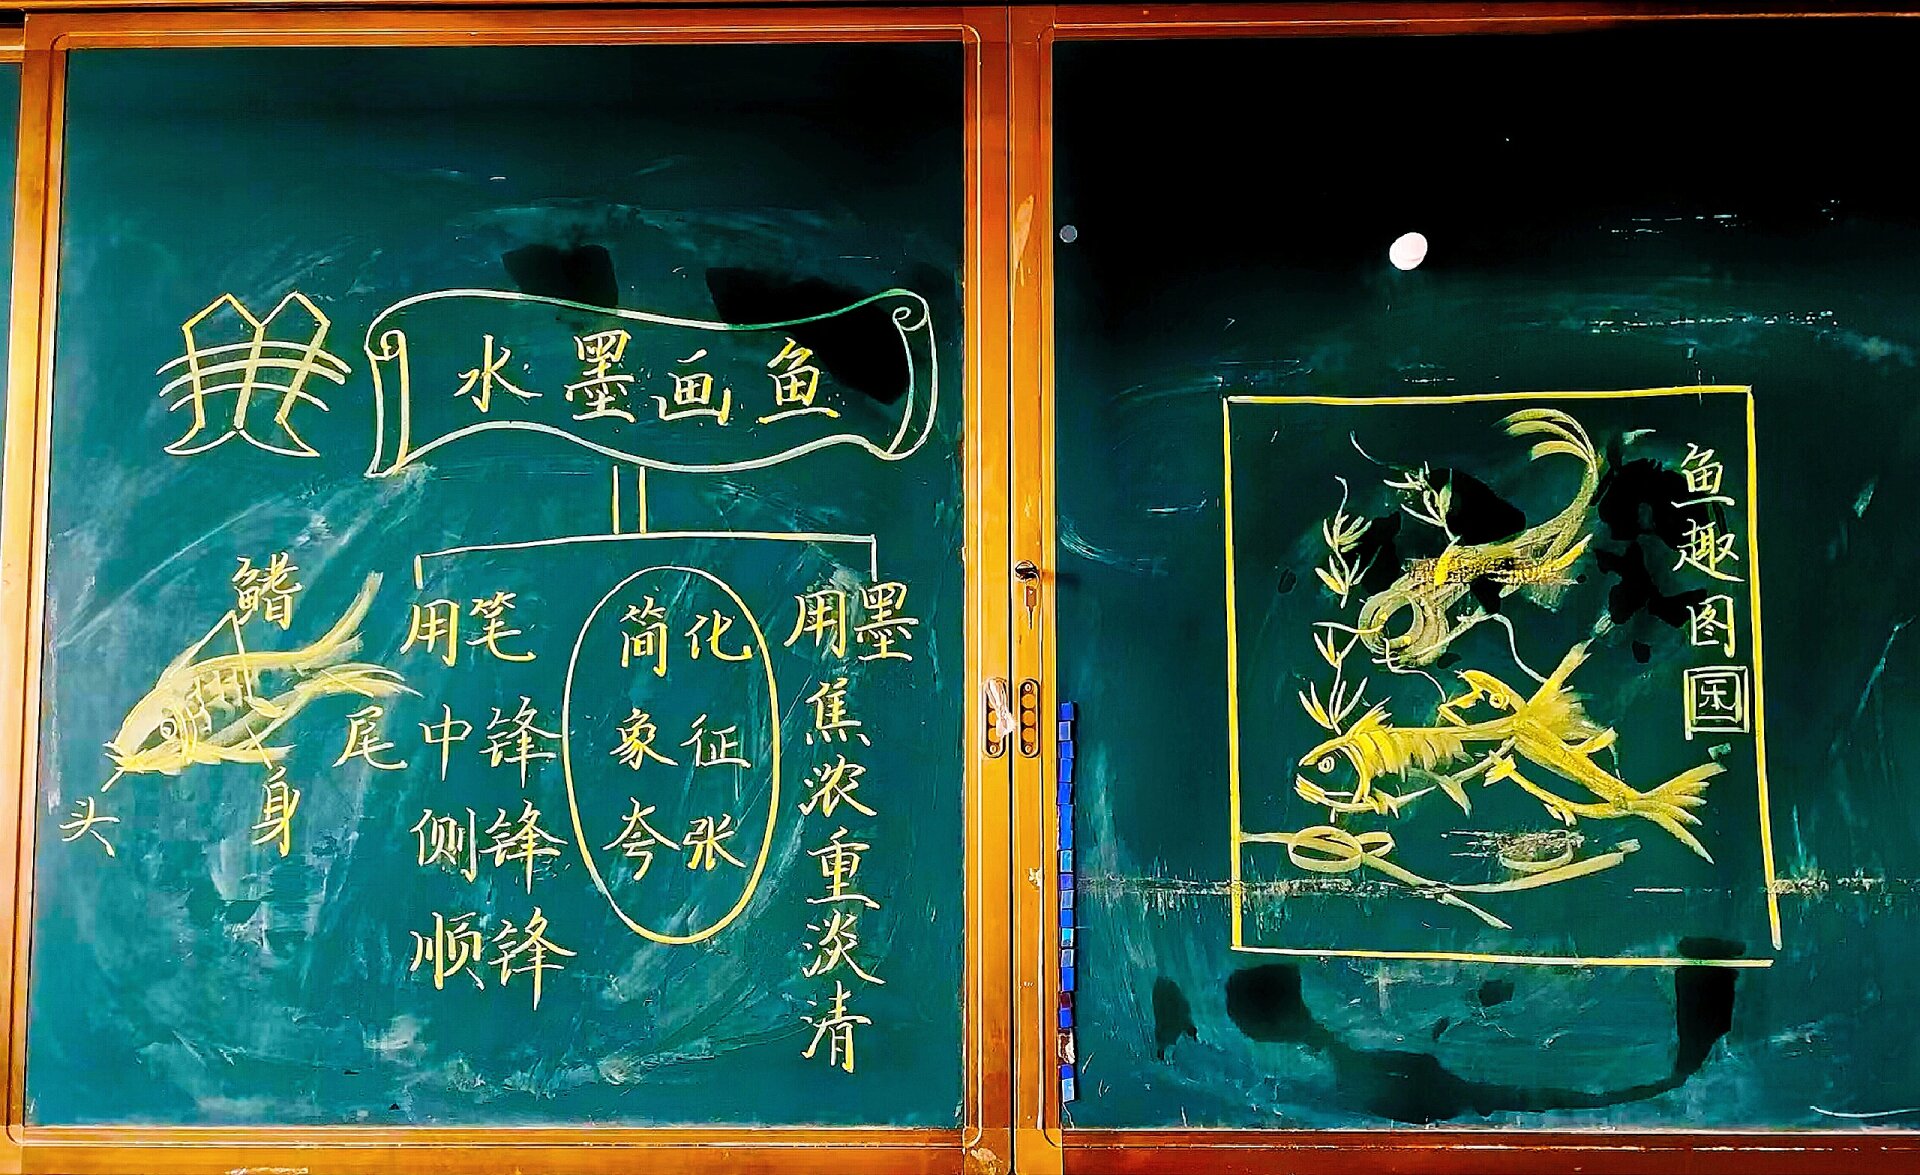 水墨画鱼
鳍
尾
身
头
用笔
中锋
侧锋
顺锋
简化
象征
夸张
用墨
焦
浓
重
淡
清
鱼趣图
乐